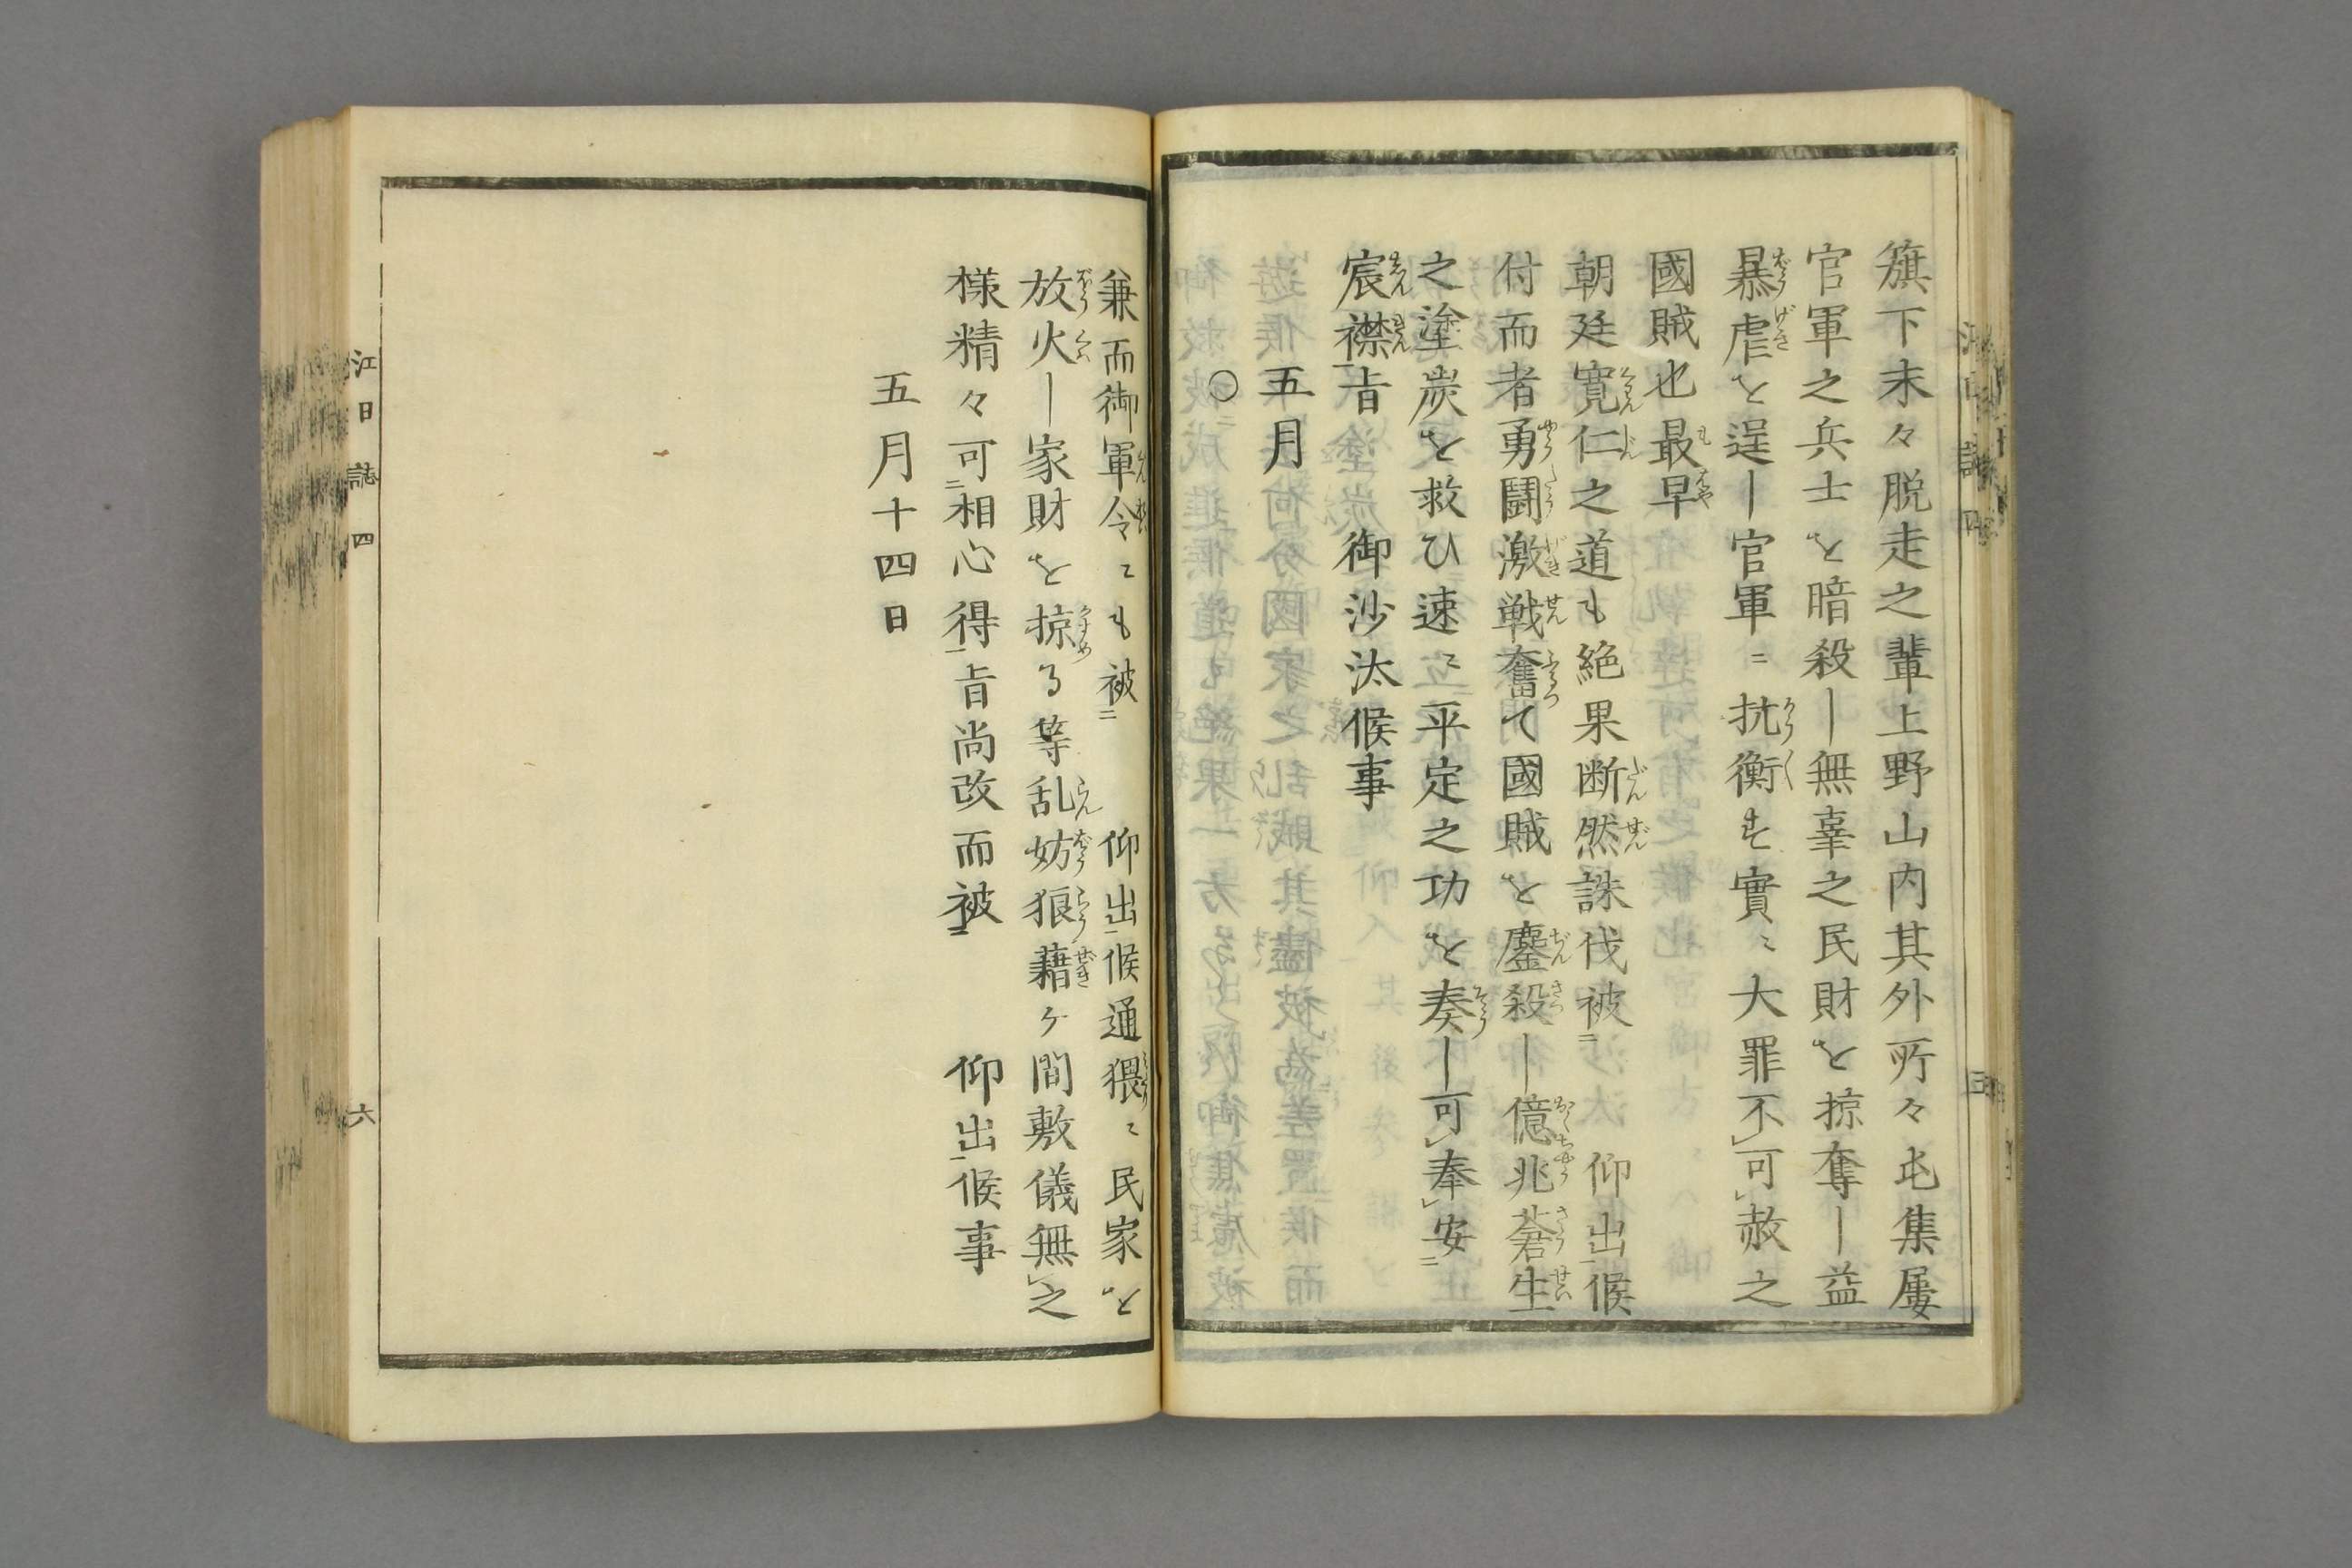 籏下末々脱走之輩上野山内其外所々屯集屡
官軍之兵士を暗殺し無辜之民財を掠奪し益
暴虐を逞し官軍ニ抗衡す実ニ大罪不可赦之
國賊也最早
朝廷寛仁之道も絶果断然誅伐被　仰出候
付而者勇闘激戦奮て國賊を鏖殺し億兆蒼生
之塗炭を救ひ速ニ平定之功を奏し可奉安
宸襟旨　御沙汰候事
五月
〇
兼而御軍令ニも被　仰出候通猥ニ民家を
放火し家財を掠る等乱妨狼藉ヶ間敷儀無之
様精々可相心得旨尚改而被　仰出候事
五月十四日
江日誌四
六